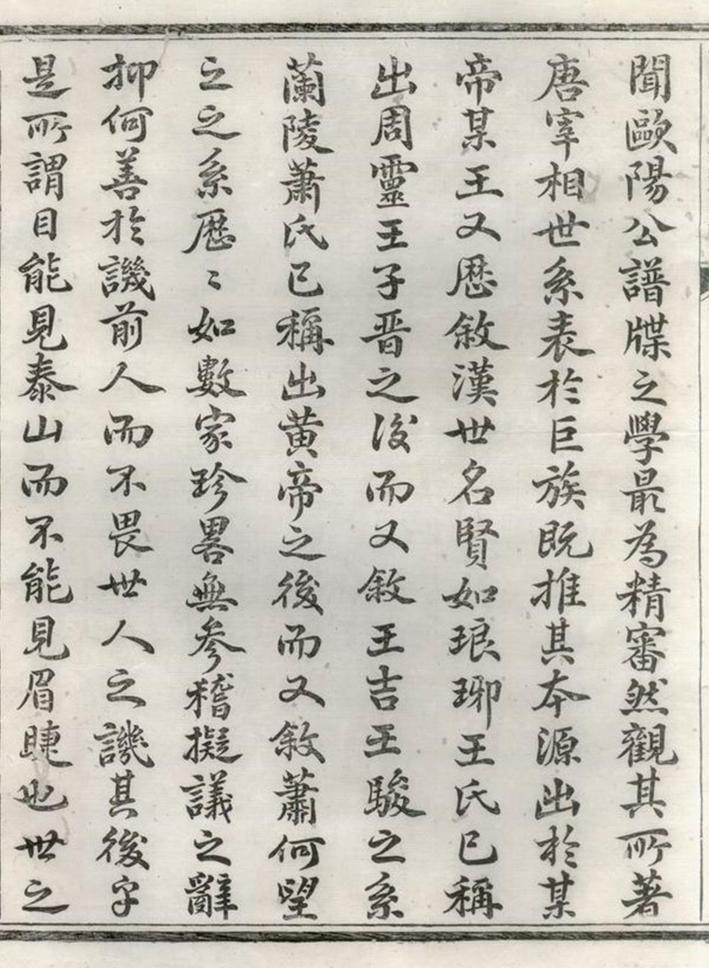 聞歐陽公譜牒之學最為精審然觀其所著
唐宰相世系表於巨族既推其本源出於某
帝某王又歷敘漢世名賢如琅琊王氏已稱
出周靈王子晉之後而又敘王吉王駿之系
蘭陵蕭氏已稱出黃帝之後而又敘蕭何望
之之系歷〻如數家珍畧無參稽擬議之辭
抑何善於譏前人而不畏世人之譏其後乎
是所謂目能見泰山而不能見眉睫也世之